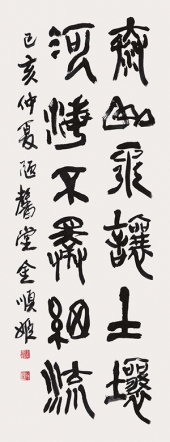 山讓土壤
河海不擇細流
己亥仲夏陋舊堂金順姬